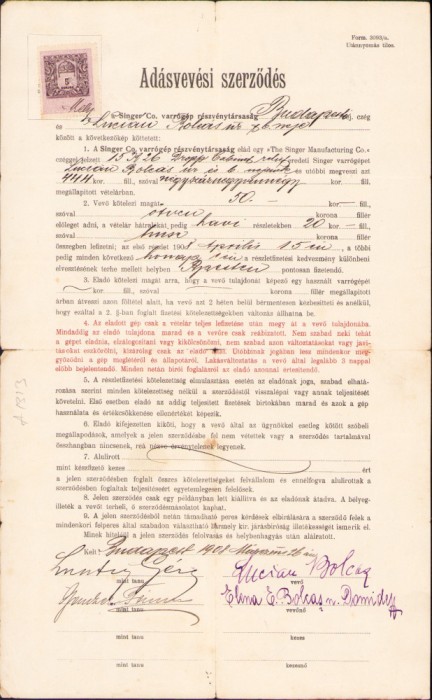 Form. 3093/a.
Utánnyomás tilos.
Adásvevési szerződés
5
mely a Singer Co. varrógép részvénytársaság Budapest cég
és Lucian Bolcas úr és neje
között a következőkép köttetett:
1. A Singer Co. varrógép részvénytársaság elad egy »The Singer Manufacturing Co.«
czéggel jelzett 15 K 26 eredeti Singer varrógépet
Lucian Bolcas úr és b. nejének és utóbbi megveszi azt
444 kor. fill., szóval négyszáznegyvennégy kor. fill.
megállapított vételárban.
2. Vevő kötelezi magát 50.— korona fillér
szóval ötven korona fillér
előleget adni, a vételár hátralékát pedig havi részletekben 20 kor. — fill.
szóval húsz korona fillér
összegben lefizetni; az első részlet 1908 április 15-én, a többi
pedig minden következő hónap én a részletfizetési kedvezmény különbeni
elvesztésének terhe mellett helyben Bpesten pontosan fizetendő.
3. Eladó kötelezi magát arra, hogy a vevő tulajdonát képező egy használt varrógépet
kor. fill., szóval korona fillér megállapított
árban átveszi azon föltétel alatt, ha vevő azt 2 héten belül bérmentesen kézbesítteti és anélkül,
hogy ezáltal a 2. §-ban foglalt fizetési kötelezettségekben változás állhatna be.
4. Az eladott gép csak a vételár teljes lefizetése után megy át a vevő tulajdonába.
Mindaddig az eladó tulajdona marad és a vevőre csak reábízatott. Nem szabad neki tehát
a gépet eladnia, elzálogosítani vagy kikölcsönözni, nem szabad azon változtatásokat vagy javí-
tásokat eszközölni, kiszolgáltatni csak az eladó Utóbbinak jogában lesz mindenkor meg-
győződni a gép meglétéről és állapotáról. Lakásváltoztatás a vevő által legalább 3 nappal
előbb bejelentendő. Minden netán bírói foglalásról az eladó azonnal értesítendő.
5. A részletfizetési kötelezettség elmulasztása esetén az eladónak joga, szabad elhatá-
rozása szerint minden kötelezettség nélkül a szerződéstől visszalépni vagy annak teljesítését
követelni. Első esetben eladó az addig teljesített fizetések birtokában marad és azok a gép
használata és értékcsökkenése ellenértékét képezik.
6. Eladó kifejezetten kiköti, hogy a vevő által az ügynökkel esetleg kötött szóbeli
megállapodások, amelyek a jelen szerződésbe fel nem vétettek vagy a szerződés tartalmával
összhangban nincsenek, reá nézve érvénytelenek legyenek.
7. Alulírott
mint készfizető kezes ért
a jelen szerződésben foglalt összes kötelezettségeket felvállalom és ennélfogva alulírottak a
szerződésben foglaltak teljesítéseért egyetemlegesen felelősek.
8. Jelen szerződés csak egy példányban lett kiállítva és az eladónak átadva. A bélyeg-
illeték a vevőt terheli, ő szerződésmásolatot kaphat.
9. A jelen szerződésből netán támadható peres kérdések elbírálására a szerződő felek
mindenkori felperes által szabadon választható bármely kir. járásbíróság illetékességét ismerik el.
Minek hitéül a jelen szerződés felolvasás és helybenhagyás után aláíratott.
Kelt Budapest 1908 26 án
mint tanu
Lucian Bolcaș
vevő
mint tanu
Elena E. Bolcaș n. Damidy
vevőnő
mint tanu
kezes
mint tanu
kezesnő